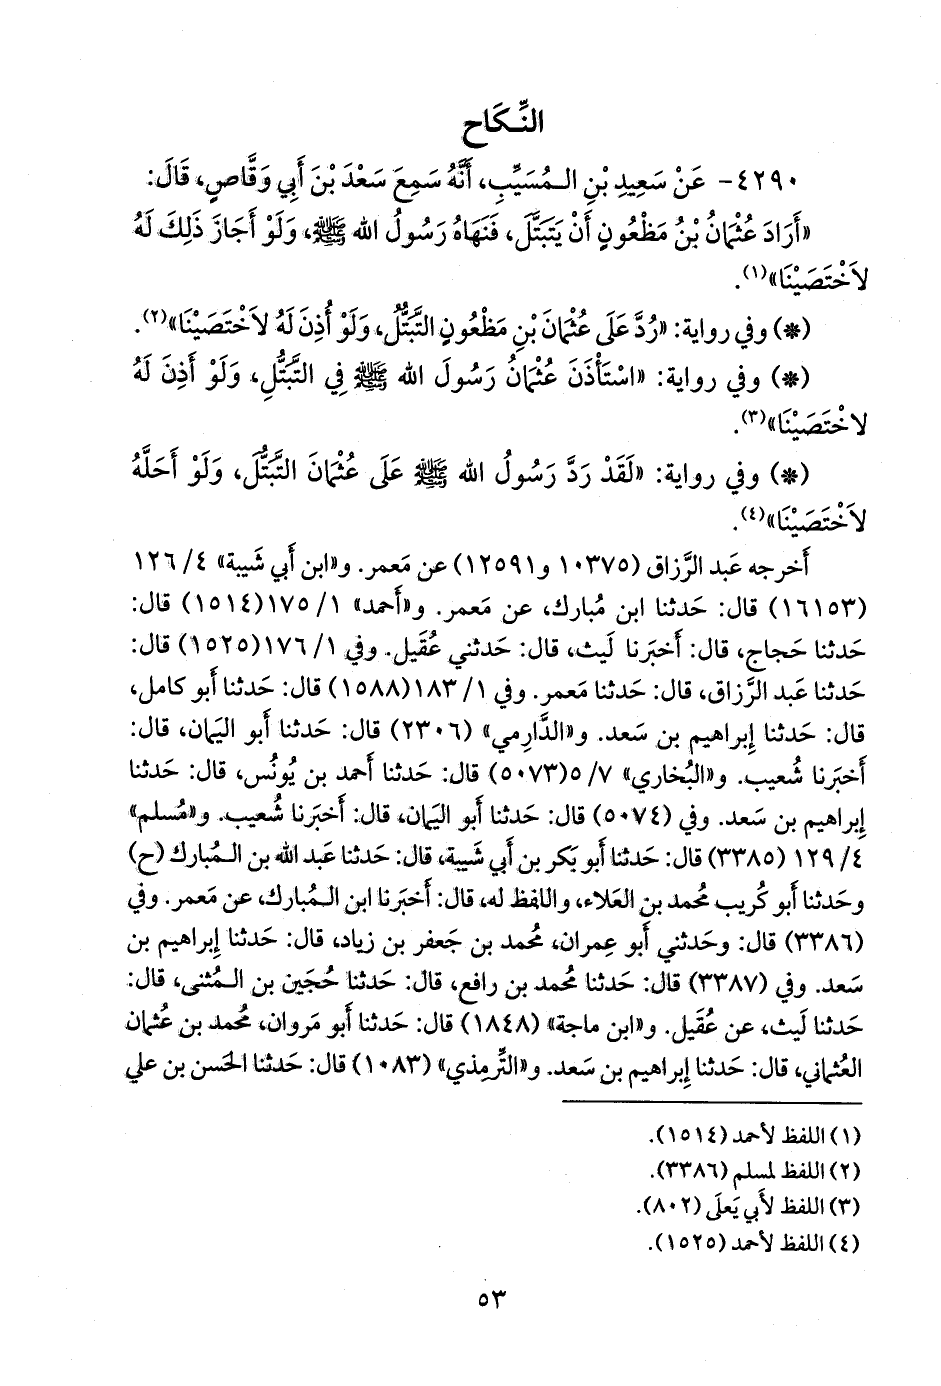 النِّكَاح
٤٢٩٠- عَنْ سَعِيدِ بْنِ الـمُسَيِّبِ، أَنَّهُ سَمِعَ سَعْدَ بْنَ أَبِي وَقَّاصٍ، قَالَ:
«أَرَادَ عُثْمَانُ بْنُ مَظْعُونٍ أَنْ يَتَبَتَّلَ، فَنَهَاهُ رَسُولُ الله ﷺ، وَلَوْ أَجَازَ ذَلِكَ لَهُ
لاَخْتَصَيْنَا»(١).
(*) وفي رواية: «رُدَّ عَلَى عُثْمَانَ بْنِ مَظْعُونٍ التَّبَتُّلُ، وَلَوْ أُذِنَ لَهُ لاَخْتَصَيْنَا»(٢).
(*) وفي رواية: «اسْتَأْذَنَ عُثْمَانُ رَسُولَ الله ﷺ فِي التَّبَتُّلِ، وَلَوْ أَذِنَ لَهُ
لاخْتَصَيْنَا»(٣).
(*) وفي رواية: «لَقَدْ رَدَّ رَسُولُ الله ﷺ عَلَى عُثْمَانَ التَّبَتُّلَ، وَلَوْ أَحَلَّهُ
لاَخْتَصَيْنَا»(٤).
أَخرجه عَبد الرَّزاق (١٠٣٧٥ و١٢٥٩١) عن مَعمر. و«ابن أَبي شَيبة» ٤/ ١٢٦
(١٦١٥٣) قال: حَدثنا ابن مُبارك، عن مَعمر. و«أَحمد» ١/ ١٧٥(١٥١٤) قال:
حَدثنا حَجاج، قال: أَخبَرنا لَيث، قال: حَدثني عُقَيل. وفي ١/ ١٧٦(١٥٢٥) قال:
حَدثنا عَبد الرَّزاق، قال: حَدثنا مَعمر. وفي ١/ ١٨٣(١٥٨٨) قال: حَدثنا أَبو كامل،
قال: حَدثنا إِبراهيم بن سَعد. و«الدَّارِمي» (٢٣٠٦) قال: حَدثنا أَبو اليَمان، قال:
أَخبَرنا شُعيب. و«البُخاري» ٧/ ٥(٥٠٧٣) قال: حَدثنا أَحمد بن يُونُس، قال: حَدثنا
إِبراهيم بن سَعد. وفي (٥٠٧٤) قال: حَدثنا أَبو اليَمان، قال: أَخبَرنا شُعيب. و«مُسلم»
٤/ ١٢٩ (٣٣٨٥) قال: حَدثنا أَبو بَكر بن أَبي شَيبة، قال: حَدثنا عَبد الله بن الـمُبارك (ح)
وحَدثنا أَبو كُريب مُحمد بن العَلاء، واللفظ له، قال: أَخبَرنا ابن الـمُبارك، عن مَعمر. وفي
(٣٣٨٦) قال: وحَدثني أَبو عِمران، مُحمد بن جَعفر بن زياد، قال: حَدثنا إِبراهيم بن
سَعد. وفي (٣٣٨٧) قال: حَدثنا مُحمد بن رافع، قال: حَدثنا حُجَين بن الـمُثنى، قال:
حَدثنا لَيث، عن عُقَيل. و«ابن ماجة» (١٨٤٨) قال: حَدثنا أَبو مَروان، مُحمد بن عُثمان
العُثماني، قال: حَدثنا إِبراهيم بن سَعد. و«التِّرمِذي» (١٠٨٣) قال: حَدثنا الحَسن بن علي
(١) اللفظ لأحمد (١٥١٤).
(٢) اللفظ لمسلم (٣٣٨٦).
(٣) اللفظ لأَبي يَعلَى (٨٠٢).
(٤) اللفظ لأحمد (١٥٢٥).
٥٣